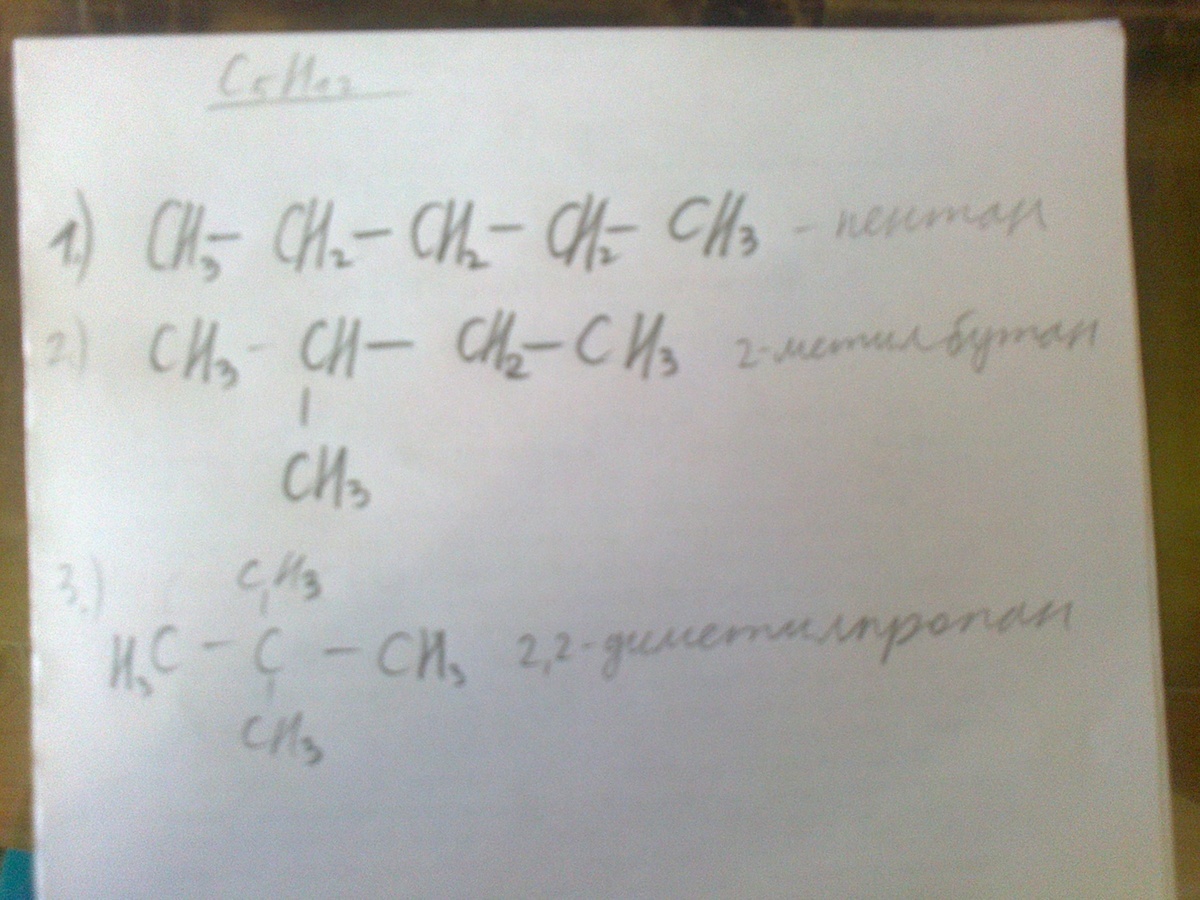 C₅H₁₂
1.) CH₃ – CH₂ – CH₂ – CH₂ – CH₃ – пентан
2.) CH₃ - CH – CH₂ – CH₃ 2-метилбутан
|
CH₃
3.) CH₃
|
H₃C – C – CH₃ 2,2-диметилпропан
|
CH₃